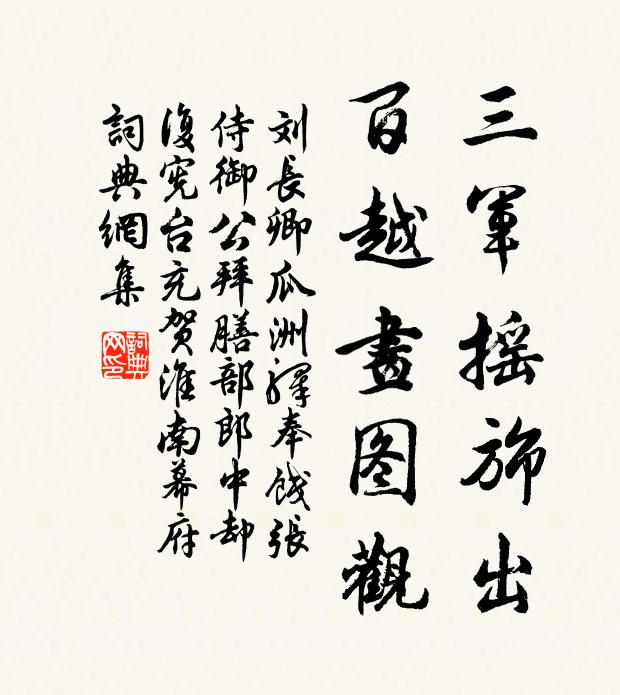 三軍摇旆出
百越畫图觀
刘長卿瓜洲驛奉餞張
侍御公拜膳部郎中却
復宪台充贺淮南幕府
詞典網集
詞典
网印